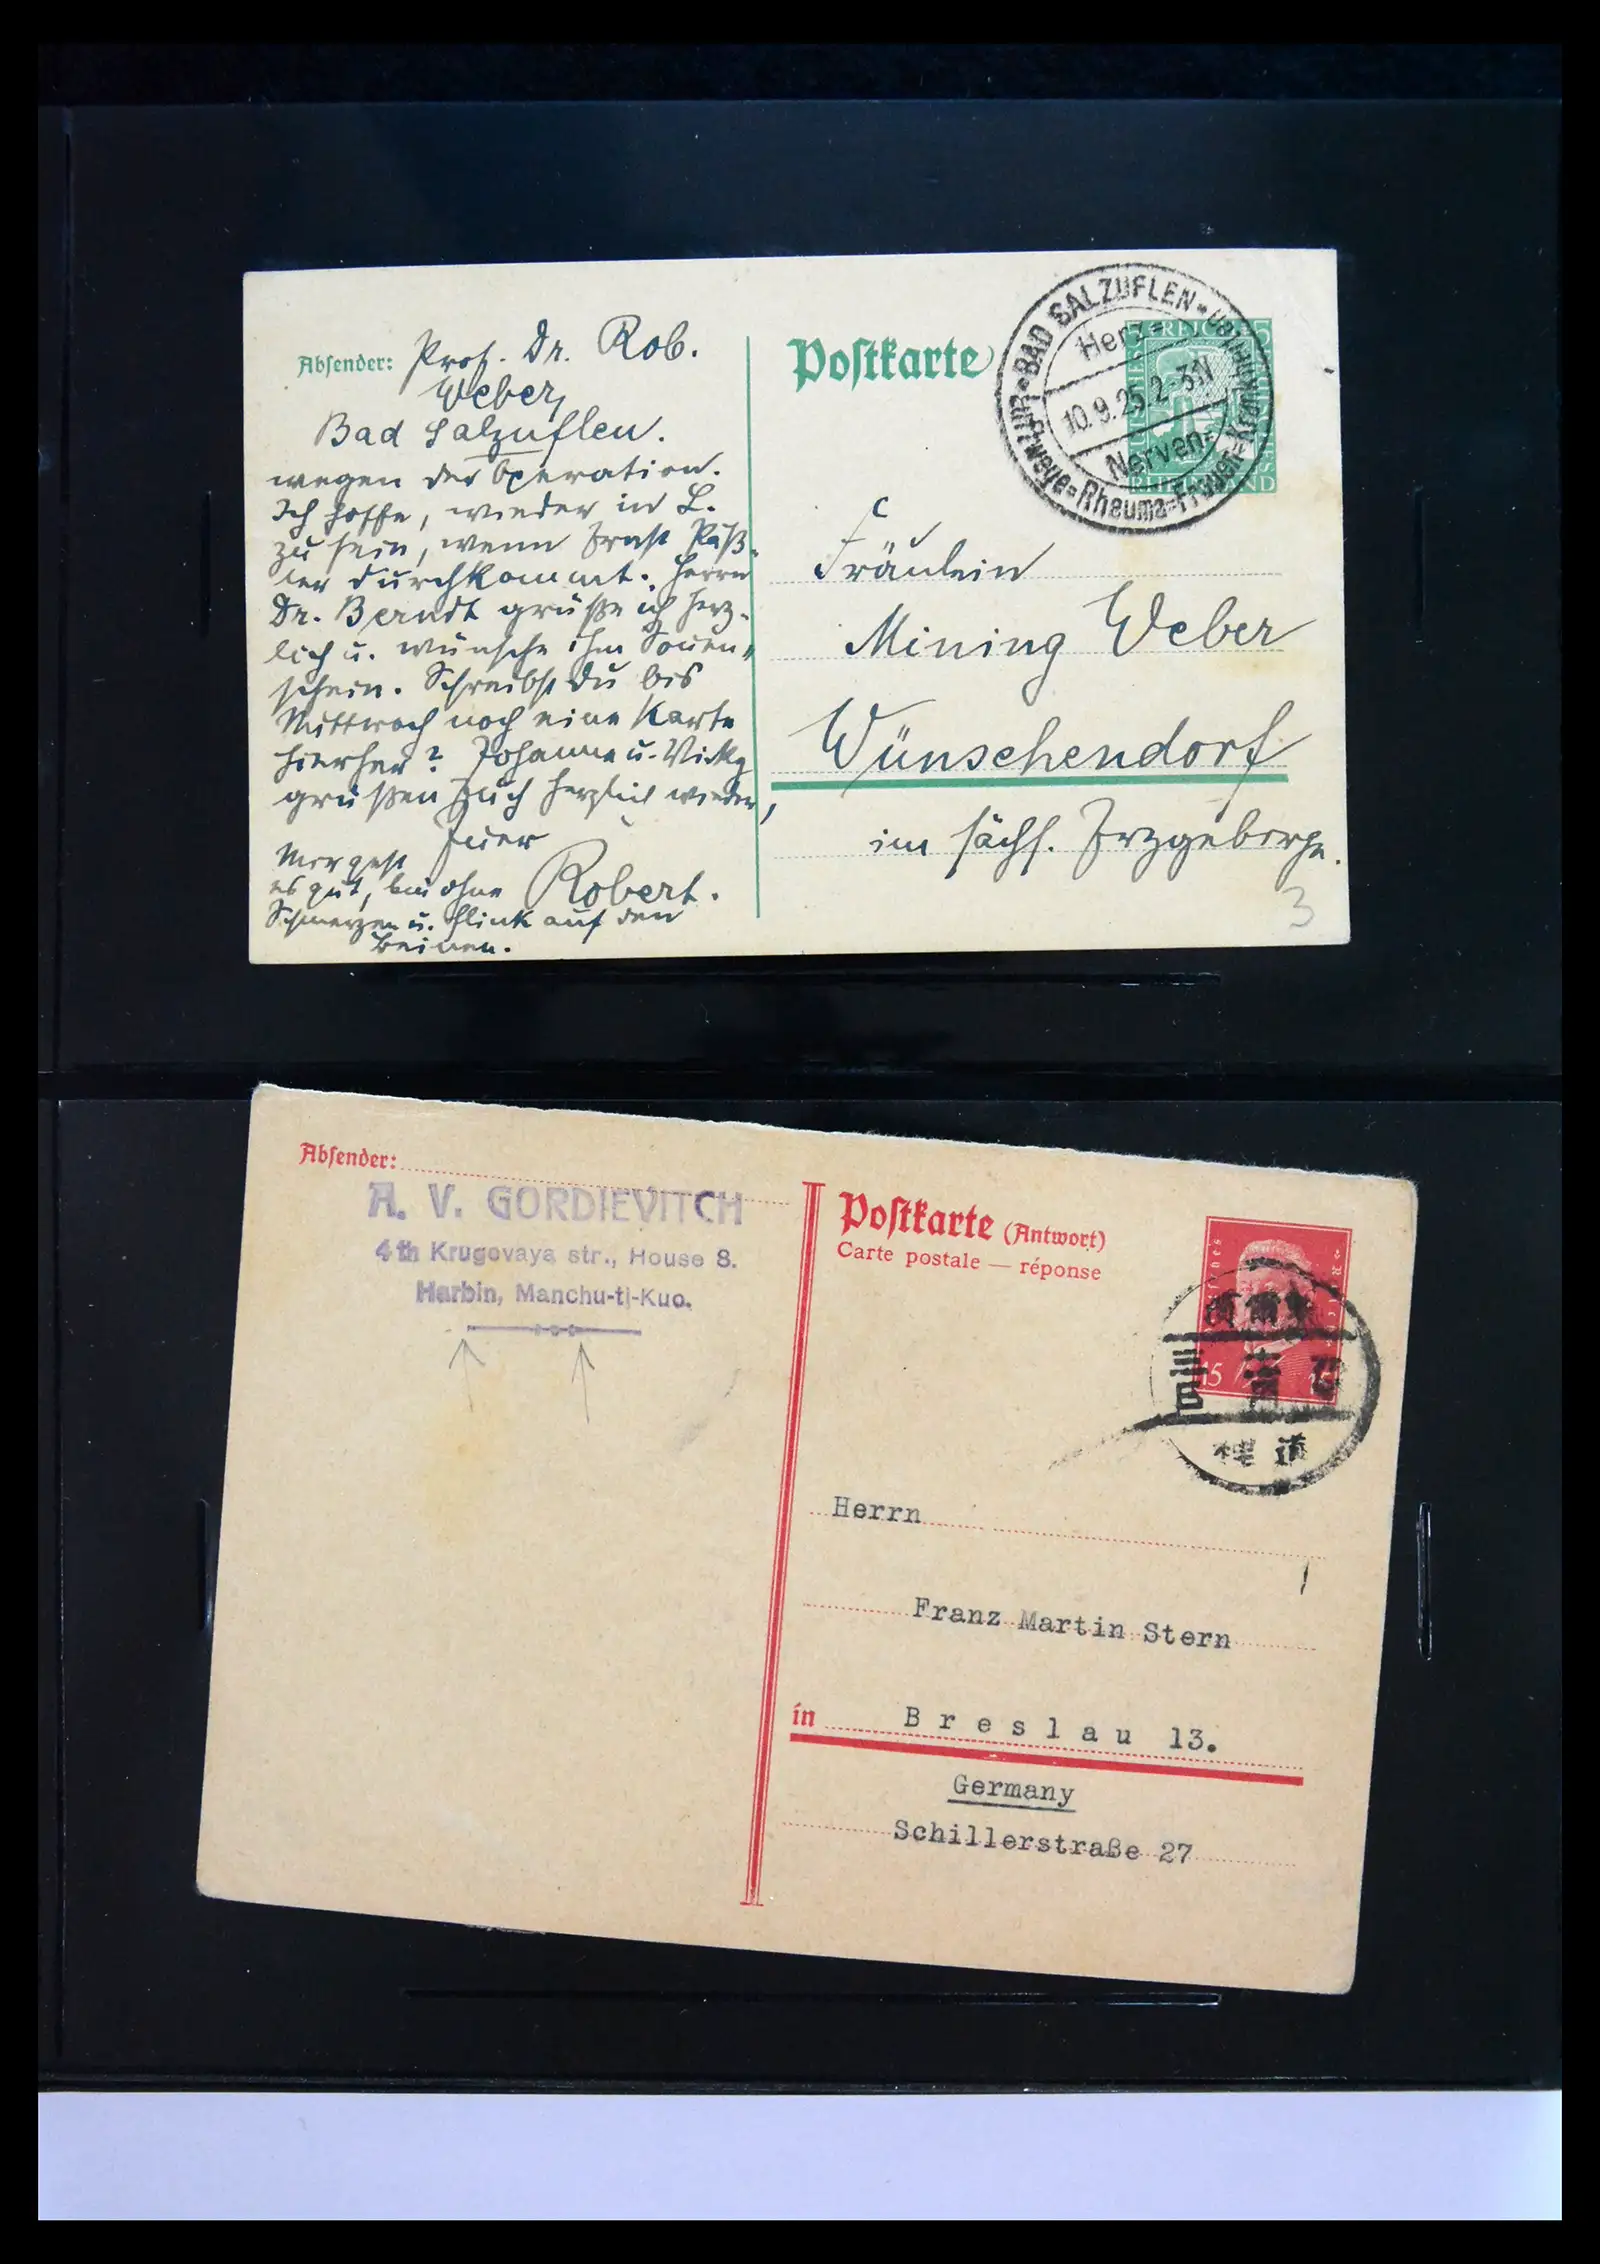 Absender: Prof. Dr. Rob.
Weber,
Bad Salzuflen.
wegen der Operation.
Ich hoffe, wieder in L.
zu sein, wenn Ernst Päß-
ler durchkommt. Herrn
Dr. Berndt grüße ich herz-
lich u. wünsche ihm Sonnen-
schein. Schreibst Du bis
Mittwoch noch eine Karte
hierher? Johanna u. Vicky
grüßen Euch herzlich wieder,
Euer
Robert.
Mir geht
es gut, bin ohne
Schmerzen u. flink auf den
Beinen.
Postkarte
BAD SALZUFLEN
Luftwege-Rheuma-Frauen-Krankheiten
Herz-
10.9.25.2-3N
Nerven-
5 REICH 5
RHEINLAND
Fräulein
Mining Weber
Wünschendorf
im sächs. Erzgebirge.
3
Absender:
A. V. GORDIEVITCH
4th Krugovaya str., House 8.
Harbin, Manchu-ti-Kuo.
Postkarte (Antwort)
Carte postale — réponse
15
Herrn
Franz Martin Stern
in Breslau 13.
Germany
Schillerstraße 27